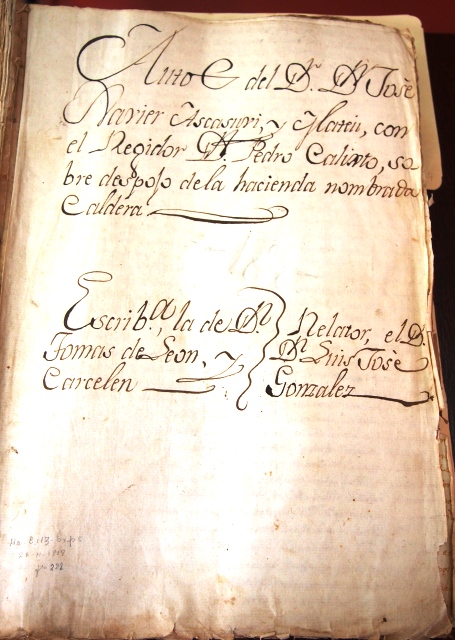 Auto S del Dr. Dn Josè
Xavier Ascasuri, y Mateu, con
el Regidor Dn. Pedro Calixto, so
bre despojo de la hacienda nombrada
Caldera
Escriba, la de Dn
Tomas de Leon, y
Carcelen
Relator, el Dr.
Dn Luis Josè
Gonzalez